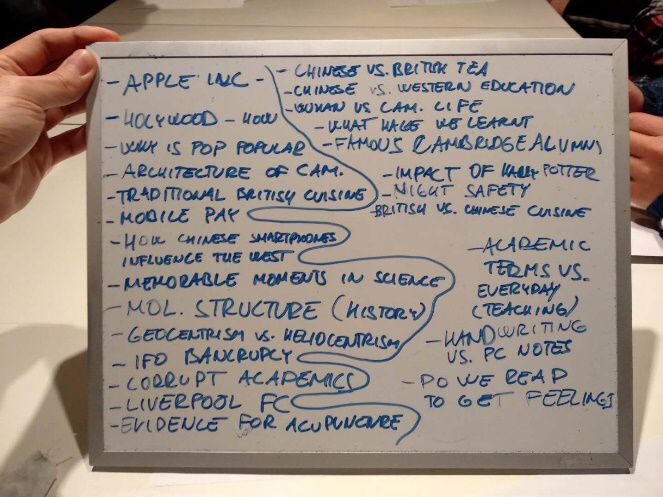 - APPLE INC -
- HOLYWOOD - HOW
- WHY IS POP POPULAR
- ARCHITECTURE OF CAM.
- TRADITIONAL BRITISH CUISINE
- MOBILE PAY
- HOW CHINESE SMARTPHONES
INFLUENCE THE WEST
- MEMORABLE MOMENTS IN SCIENCE
- MOL. STRUCTURE (HISTORY)
- GEOCENTRISM VS. HELIOCENTRISM
- IFO BANCRUPCY
- CORRUPT ACADEMICS
- LIVERPOOL FC
- EVIDENCE FOR ACUPUNCURE
- CHINESE VS. BRITISH TEA
- CHINESE VS. WESTERN EDUCATION
- WUHAN VS CAM. LIFE
- WHAT HAVE WE LEARNT
- FAMOUS CAMBRIDGE ALUMNI
- IMPACT OF HARRY POTTER
- NIGHT SAFETY
- BRITISH VS. CHINESE CUISINE
- ACADEMIC
TERMS VS.
EVERYDAY
(TEACHING)
- HANDWRITING
VS. PC NOTES
- DO WE READ
TO GET FEELINGS